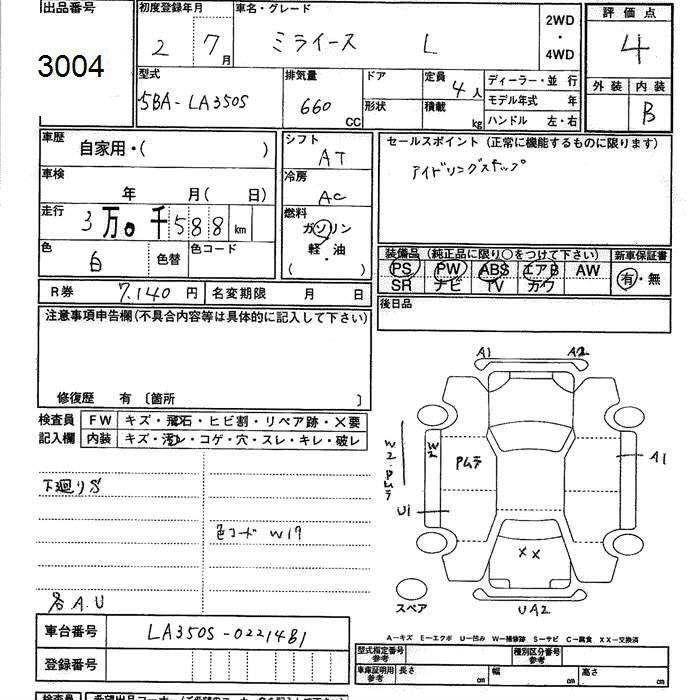 出品番号 初度登録年月 車名・グレード 2WD・4WD 評価点
3004 2 7月 ミライース L 4
型式 排気量 ドア 定員 4人 ディーラー・並行 外装 内装
5BA-LA350S 660 CC 形状 積載 kg モデル年式 年 B
ハンドル 左・右
車歴 自家用・( ) シフト AT セールスポイント(正常に機能するものに限ります)
車検 年 月( 日) 冷房 AC アイドリングストップ
走行 3万0千588km 燃料 ガソリン
色 白 色替 色コード 軽・油 ( )
装備品(純正品に限り○をつけて下さい) 新車保証書
PS PW ABS エアB AW 有・無
SR ナビ TV カワ
R券 7,140円 名変期限 月 日 後日品
注意事項申告欄(不具合内容等は具体的に記入して下さい)
修復歴 有 〔箇所 〕
検査員 FW キズ・飛石・ヒビ割・リペア跡・×要
記入欄 内装 キズ・汚レ・コゲ・穴・スレ・キレ・破レ
A1 A2
W2 Pムラ A1
W2・Pムラ
U1
XX
スペア UA2
下廻りS
色コード W19
各A.U
車台番号 LA350S-0221481
登録番号
A-キズ E-エクボ U-凹み W-補修跡 S-サビ C-腐食 XX-交換済
型式指定番号 参考 種別区分番号 参考
車庫証明用 参考 長さ cm 幅 cm 高さ cm